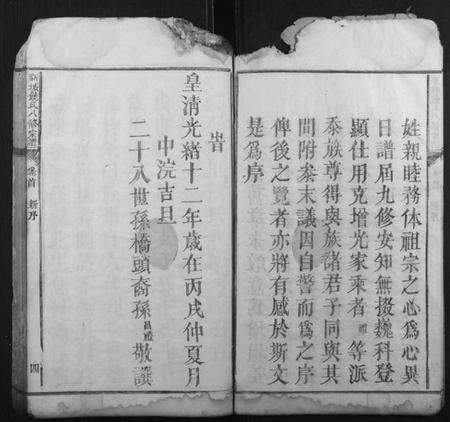 姓親睦務体祖宗之心為心異
日譜屆九修安知無掇巍科登
顯仕用克增光家乘者禮等派
忝族尊得與族諸君子同與其
間附叅末議因自警而為之序
俾後之覽者亦將有感於斯文
是為序
旹
皇清光緒十二年歲在丙戌仲夏月
中浣吉旦
二十八世孫橋頭裔孫昌禮敬譔
氏八修宗譜
卷首
新序
四